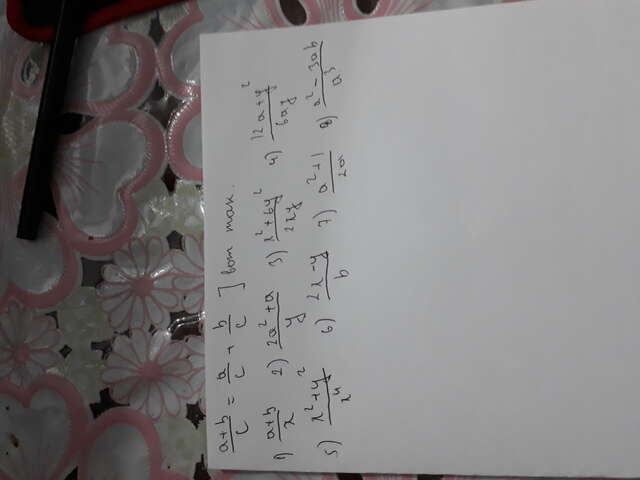 (a+b)/c = a/c + b/c ] вот так.
1) (a+b)/x 2) (2a²+a)/y 3) (x²+6y²)/(2xy) 4) (12a+y²)/(6ay)
5) (x²+y²)/x⁴ 6) (2x-y)/b 7) (a²+1)/(2a) 8) (a²-3ab)/a³